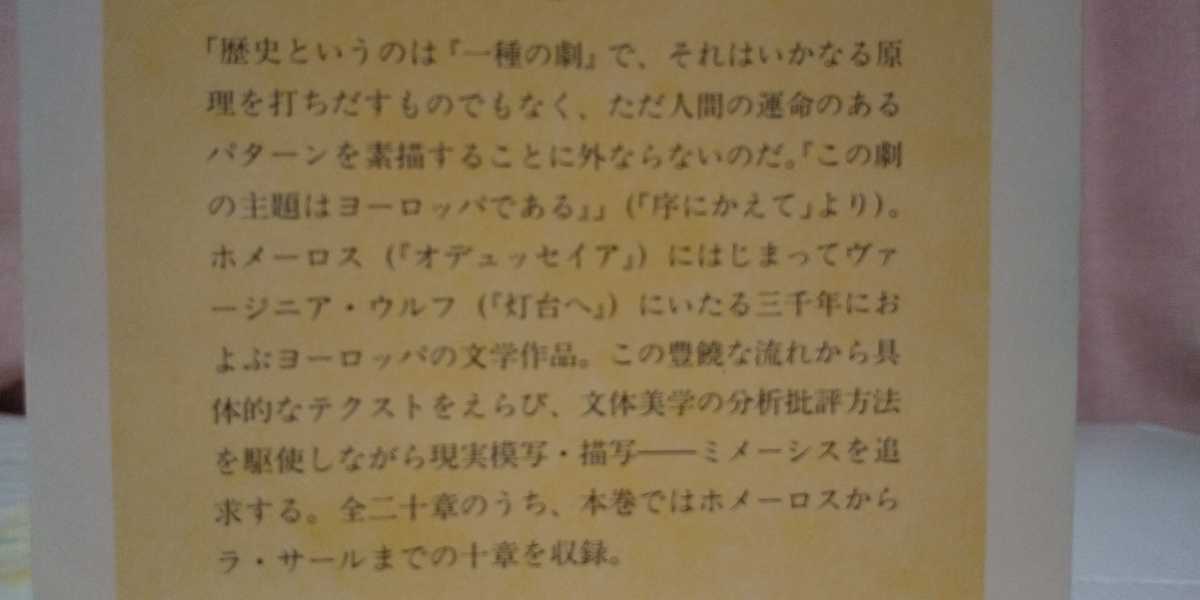 「歴史というのは『一種の劇』で、それはいかなる原
理を打ちだすものでもなく、ただ人間の運命のある
パターンを素描することに外ならないのだ。『この劇
の主題はヨーロッパである』」(「序にかえて」より)。
ホメーロス(『オデュッセイア』)にはじまってヴァ
ージニア・ウルフ(『灯台へ』)にいたる三千年にお
よぶヨーロッパの文学作品。この豊饒な流れから具
体的なテクストをえらび、文体美学の分析批評方法
を駆使しながら現実模写・描写――ミメーシスを追
求する。全二十章のうち、本巻ではホメーロスから
ラ・サールまでの十章を収録。